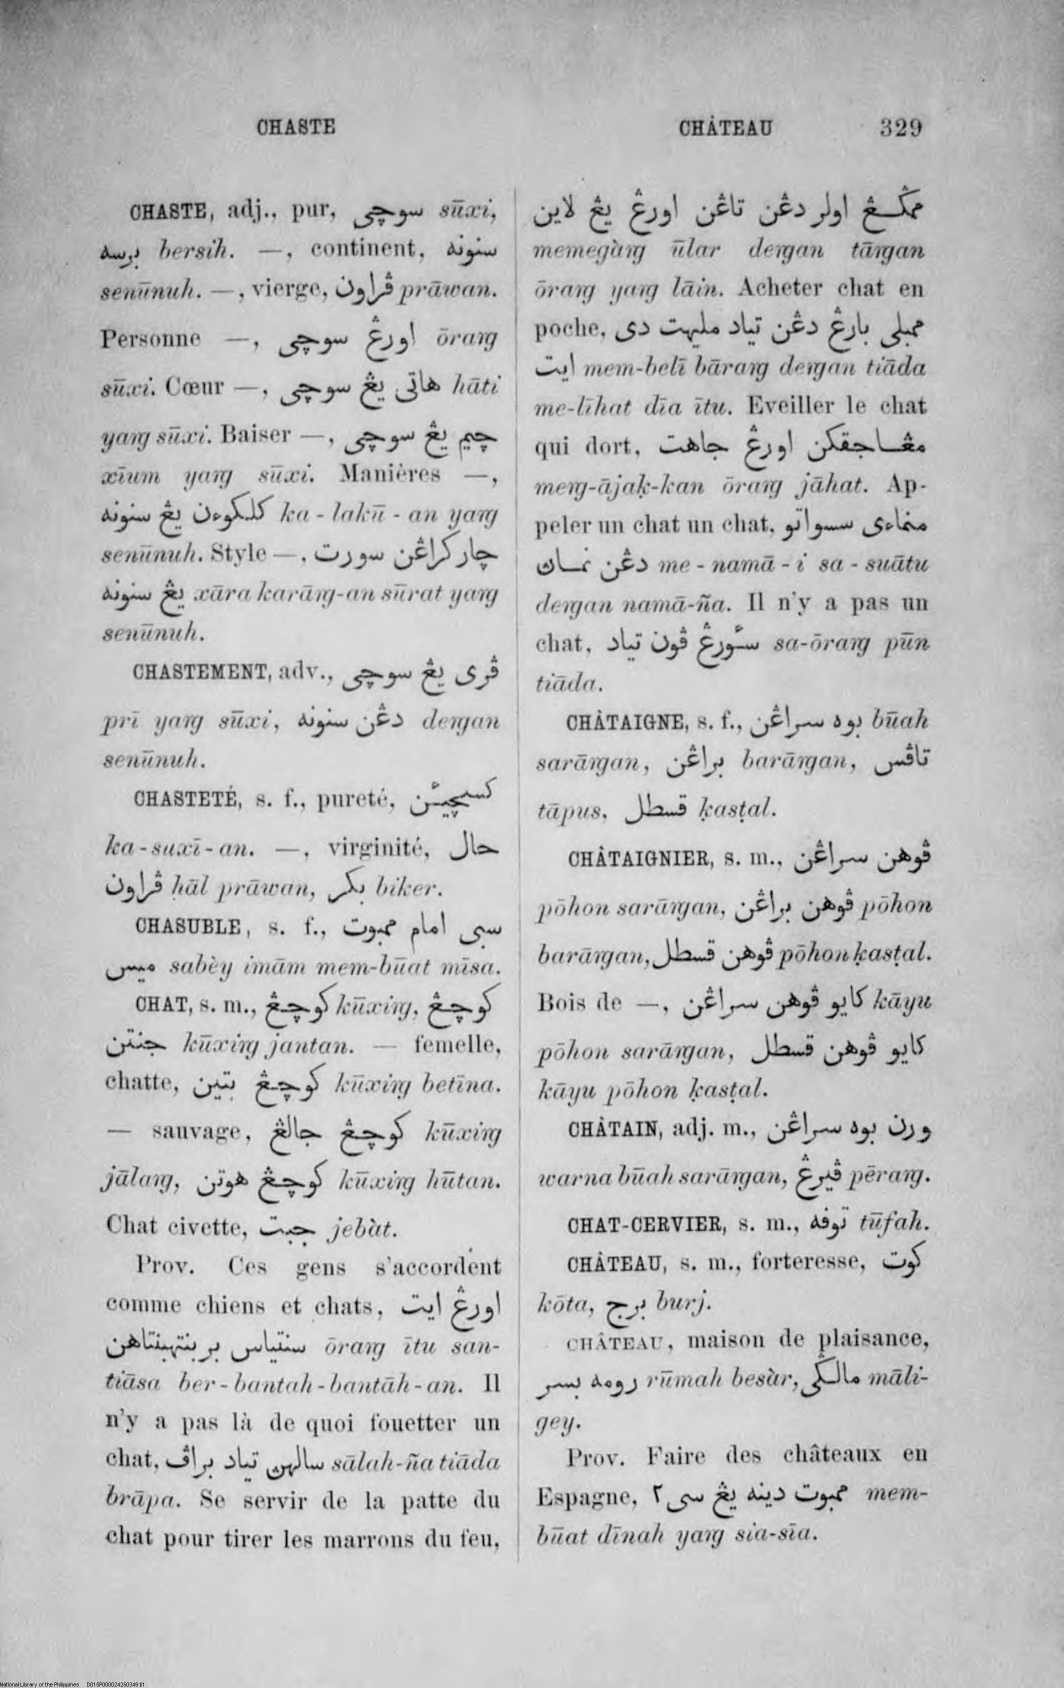 CHASTE
CHÂTEAU 329
CHASTE, adj., pur, سوچى sūxi,
برسه bersih. —, continent, سنونه
senūnuh. —, vierge, ڤراون prāwan.
Personne —, اورڠ سوچى ōrang
sūxi. Cœur —, هاتى يڠ سوچى hāti
yang sūxi. Baiser —, چيم يڠ سوچى
xīum yang sūxi. Manières —,
كلكوءن يڠ سنونه ka-lakū-an yang
senūnuh. Style —, چار كراڠن سورت
يڠ سنونه xāra karāng-an sūrat yang
senūnuh.
CHASTEMENT, adv., ڤرى يڠ سوچى
prī yang sūxi, دڠن سنونه dengan
senūnuh.
CHASTETÉ, s. f., pureté, كسچيئن
ka-suxī-an. —, virginité, حال
ڤراون ḥāl prāwan, بكر biker.
CHASUBLE, s. f., سبى امام ممبوت
ميس sabèy imām mem-būat mīsa.
CHAT, s. m., كوچڠ kūxing, كوچڠ
جنتن kūxing jantan. — femelle,
chatte, كوچڠ بتين kūxing betīna.
— sauvage, كوچڠ جالڠ kūxing
jālang, كوچڠ هوتن kūxing hūtan.
Chat civette, جبت jebàt.
Prov. Ces gens s'accordent
comme chiens et chats, اورڠ ايت
سنتياس بربنتهبنتاهن ōrang ītu san-
tiāsa ber-bantah-bantāh-an. Il
n'y a pas là de quoi fouetter un
chat, سالهن تياد براڤ sālah-ña tiāda
brāpa. Se servir de la patte du
chat pour tirer les marrons du feu,
ممڬڠ اولر دڠن تاڠن اورڠ يڠ لاين
memegàng ūlar dengan tāngan
ōrang yang lāin. Acheter chat en
poche, ممبلى بارڠ دڠن تياد مليهت دى
ايت mem-belī bārang dengan tiāda
me-līhat dīa ītu. Eveiller le chat
qui dort, مڠاجقكن اورڠ جاهت
meng-ājaḳ-kan ōrang jāhat. Ap-
peler un chat un chat, منماءى سسواتو
دڠن نماڽ me-namā-i sa-suātu
dengan namā-ña. Il n'y a pas un
chat, سئورڠ ڤون تياد sa-ōrang pūn
tiāda.
CHÂTAIGNE, s. f., بوه سراڠن būah
sarāngan, براڠن barāngan, تاڤس
tāpus, قسطل ḳasṭal.
CHÂTAIGNIER, s. m., ڤوهن سراڠن
pōhon sarāngan, ڤوهن براڠن pōhon
barāngan, ڤوهن قسطل pōhon ḳasṭal.
Bois de —, كايو ڤوهن سراڠن kāyu
pōhon sarāngan, كايو ڤوهن قسطل
kāyu pōhon ḳasṭal.
CHÂTAIN, adj. m., ورن بوه سراڠن
warna būah sarāngan, ڤيرڠ pērang.
CHAT-CERVIER, s. m., توفه tūfah.
CHÂTEAU, s. m., forteresse, كوت
kōta, برج burj.
CHÂTEAU, maison de plaisance,
رومه بسر rūmah besàr, مالڬى māli-
gey.
Prov. Faire des châteaux en
Espagne, ممبوت دينه يڠ سى٢ mem-
būat dīnah yang sia-sīa.
National Library of the Philippines